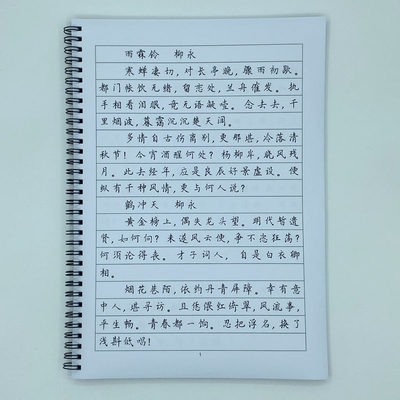 雨霖铃　柳永
寒蝉凄切,对长亭晚,骤雨初歇。
都门帐饮无绪,留恋处,兰舟催发。执
手相看泪眼,竟无语凝噎。念去去,千
里烟波,暮霭沉沉楚天阔。
多情自古伤离别,更那堪,冷落清
秋节!今宵酒醒何处?杨柳岸,晓风残
月。此去经年,应是良辰好景虚设。便
纵有千种风情,更与何人说?
鹤冲天　柳永
黄金榜上,偶失龙头望。明代暂遗
贤,如何向?未遂风云便,争不恣狂荡?
何须论得丧。才子词人,自是白衣卿
相。
烟花巷陌,依约丹青屏障。幸有意
中人,堪寻访。且恁偎红倚翠,风流事,
平生畅。青春都一饷。忍把浮名,换了
浅斟低唱!
1